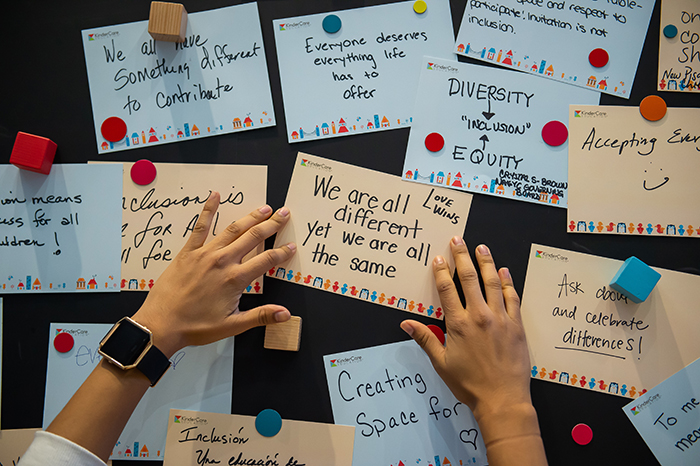 KinderCare
We all have
Something different
to contribute
KinderCare
Everyone deserves
everything life
has to
offer
participate! Invitation is not
inclusion.
space and respect to
KinderCare
DIVERSITY
"INCLUSION"
EQUITY
CRYSTAL S. BROWN
NAEYC GOVERNING
BOARD
KinderCare
Accepting
means
for all
KinderCare
Inclusion is
for All
for all.
KinderCare
We are all
different
yet we are all
the same
LOVE
WINS
KinderCare
Ask about
and celebrate
differences!
KinderCare
KinderCare
Creating
Space for
KinderCare
To me
KinderCare
Inclusion
Una educación de